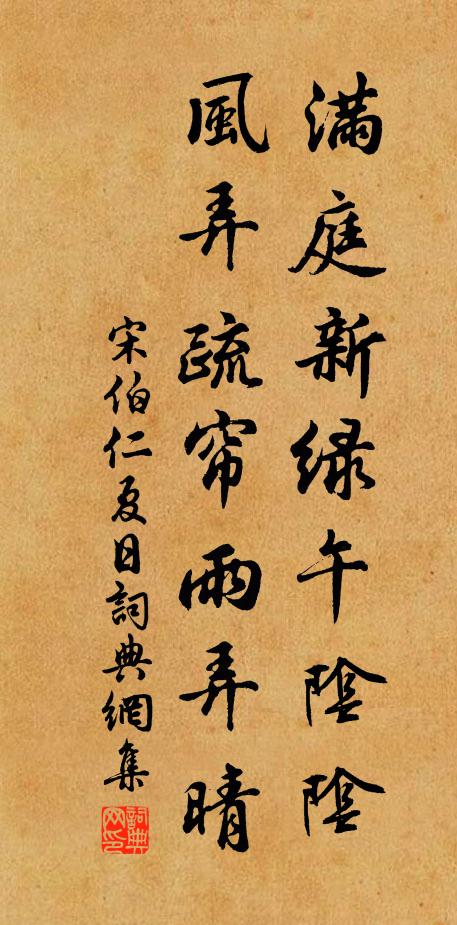 滿庭新緑午陰陰
風弄疏帘雨弄晴
宋伯仁夏日詞典網集
詞典网印